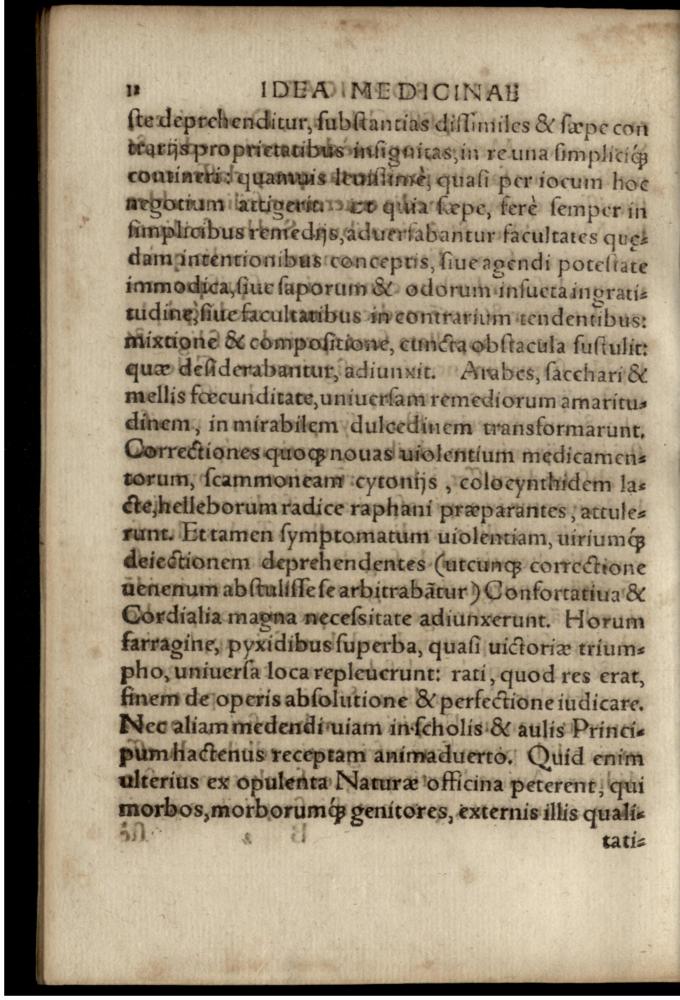 12 IDEA MEDICINAE
ſte deprehenditur, ſubſtantias diſſimiles & ſæpe con
trarijs proprietatibus inſignitas, in re una ſimpliciq́;
contineri: quamuis leuiſsimè, quaſi per iocum hoc
negotium attigerit. et quia ſæpe, ferè ſemper in
ſimplicibus remedijs, aduerſabantur facultates quę⸗
dam intentionibus conceptis, ſiue agendi poteſtate
immodica, ſiue ſaporum & odorum inſueta ingrati⸗
tudine, ſiue facultatibus in contrarium tendentibus:
mixtione & compoſitione, cuncta obſtacula ſuſtulit:
quæ deſiderabantur, adiunxit. Arabes, ſacchari &
mellis fœcunditate, uniuerſam remediorum amaritu⸗
dinem, in mirabilem dulcedinem transformarunt.
Correctiones quoq; nouas uiolentium medicamen⸗
torum, ſcammoneam cytonijs, colocynthidem la⸗
cte, helleborum radice raphani præparantes, attule⸗
runt. Et tamen ſymptomatum uiolentiam, uiriumq́;
deiectionem deprehendentes (utcunq; correctione
uenenum abſtuliſſe ſe arbitrabãtur) Confortatiua &
Cordialia magna neceſsitate adiunxerunt. Horum
farragine, pyxidibus ſuperba, quaſi uictoriæ trium⸗
pho, uniuerſa loca repleuerunt: rati, quod res erat,
finem de operis abſolutione & perfectione iudicare.
Nec aliam medendi uiam in ſcholis & aulis Princi⸗
pum hactenus receptam animaduerto. Quid enim
ulterius ex opulenta Naturæ officina peterent, qui
morbos, morborumq́; genitores, externis illis quali⸗
tati⸗